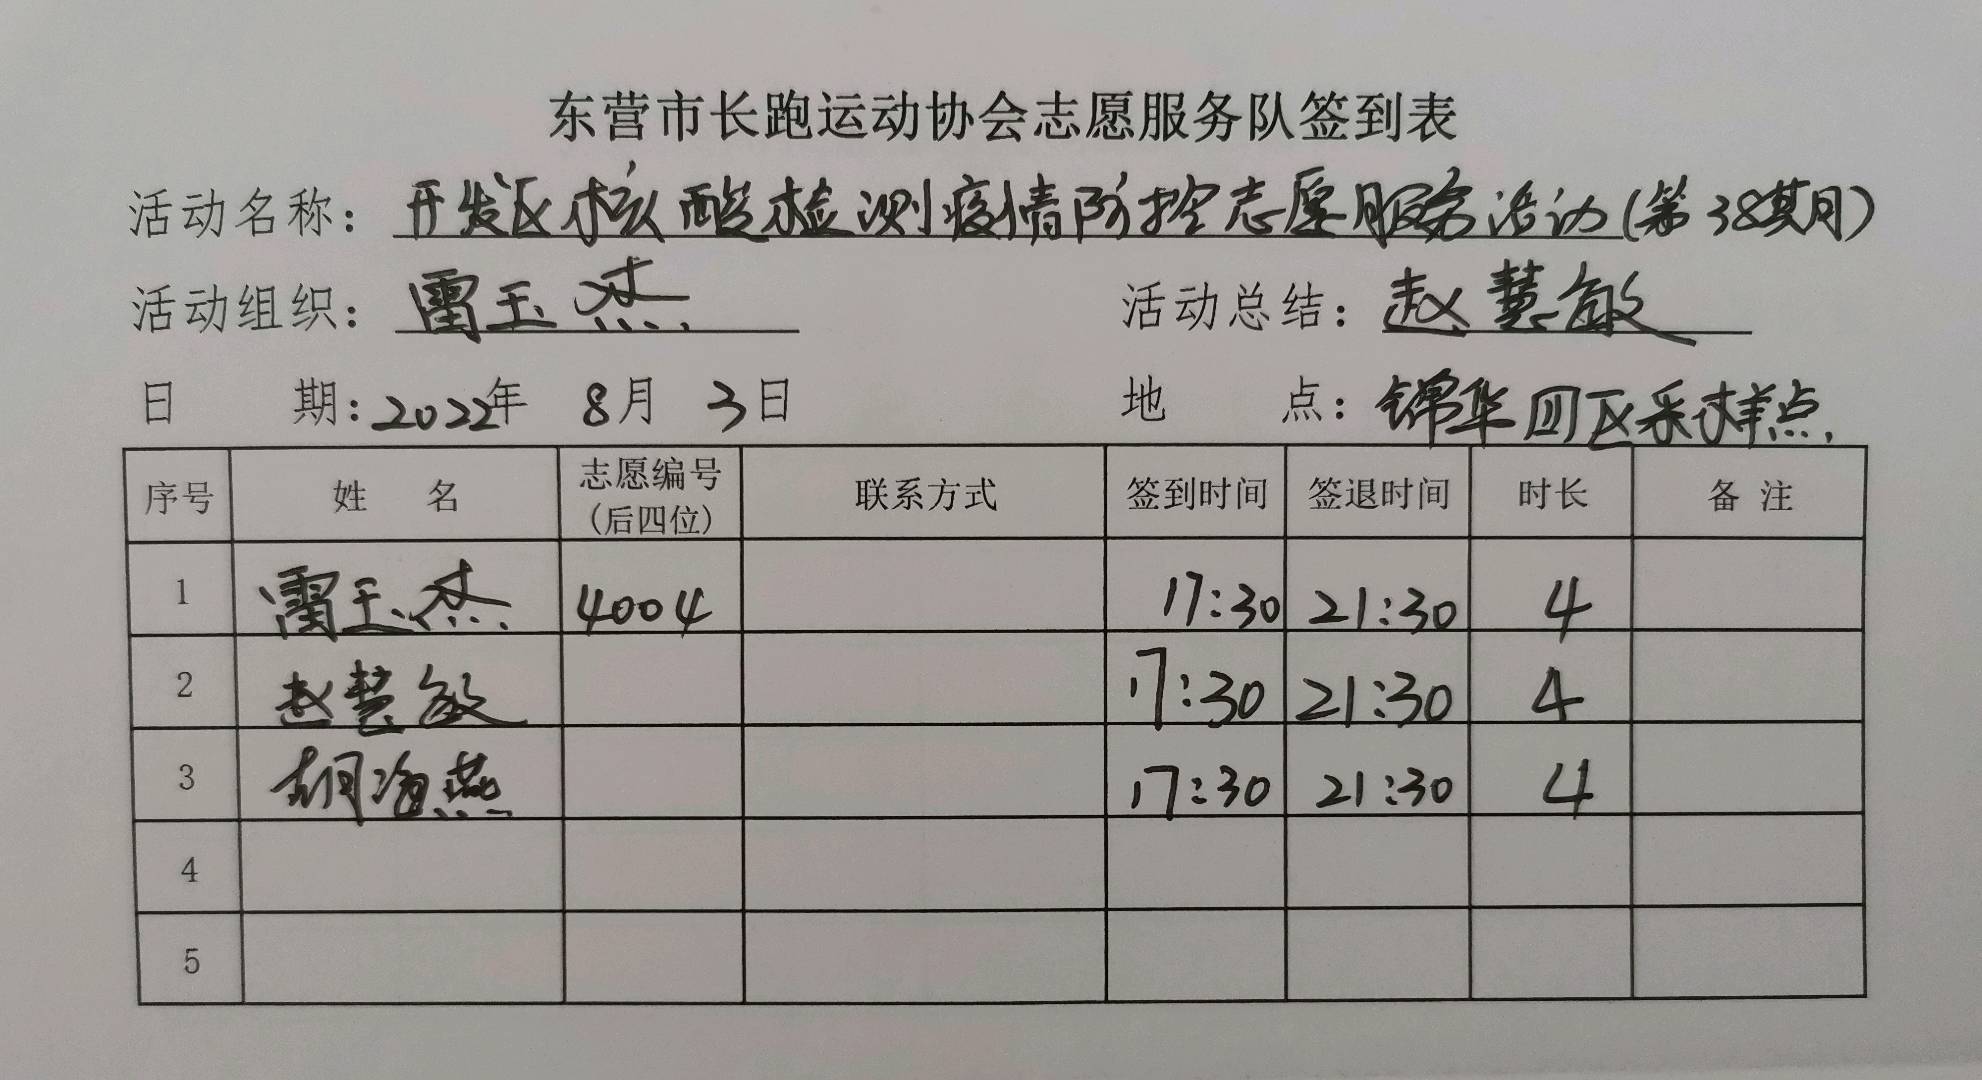 东营市长跑运动协会志愿服务队签到表
活动名称：开发区核酸检测疫情防控志愿服务活动（第38期）
活动组织：雷玉杰 活动总结：赵慧敏
日 期：2022年 8月 3日 地 点：锦华四区采样点
序号 姓 名 志愿编号（后四位） 联系方式 签到时间 签退时间 时长 备 注
1 雷玉杰 4004 17:30 21:30 4
2 赵慧敏 17:30 21:30 4
3 胡海燕 17:30 21:30 4
4
5